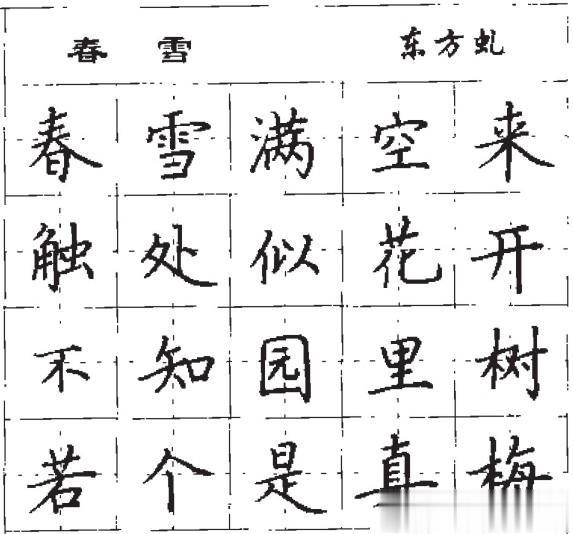 春雪 东方虬
春雪满空来
触处似花开
不知园里树
若个是真梅